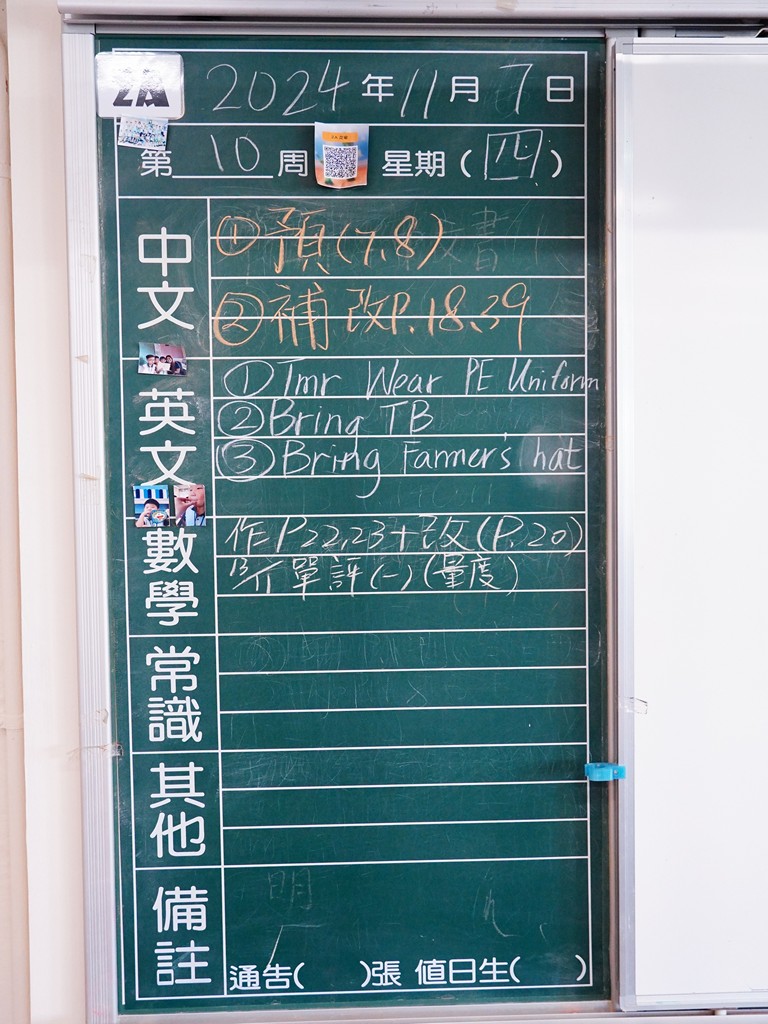 2A
2024年11月7日
第10周 星期(四)
中文
①預(7,8)
②補改P.18,39
英文
①Tmr Wear PE Uniform
②Bring TB
③Bring Farmer's hat
數學
作P22,23+改(P.20)
13/11單評(一)(量度)
常識
其他
備註
通告( )張 值日生( )